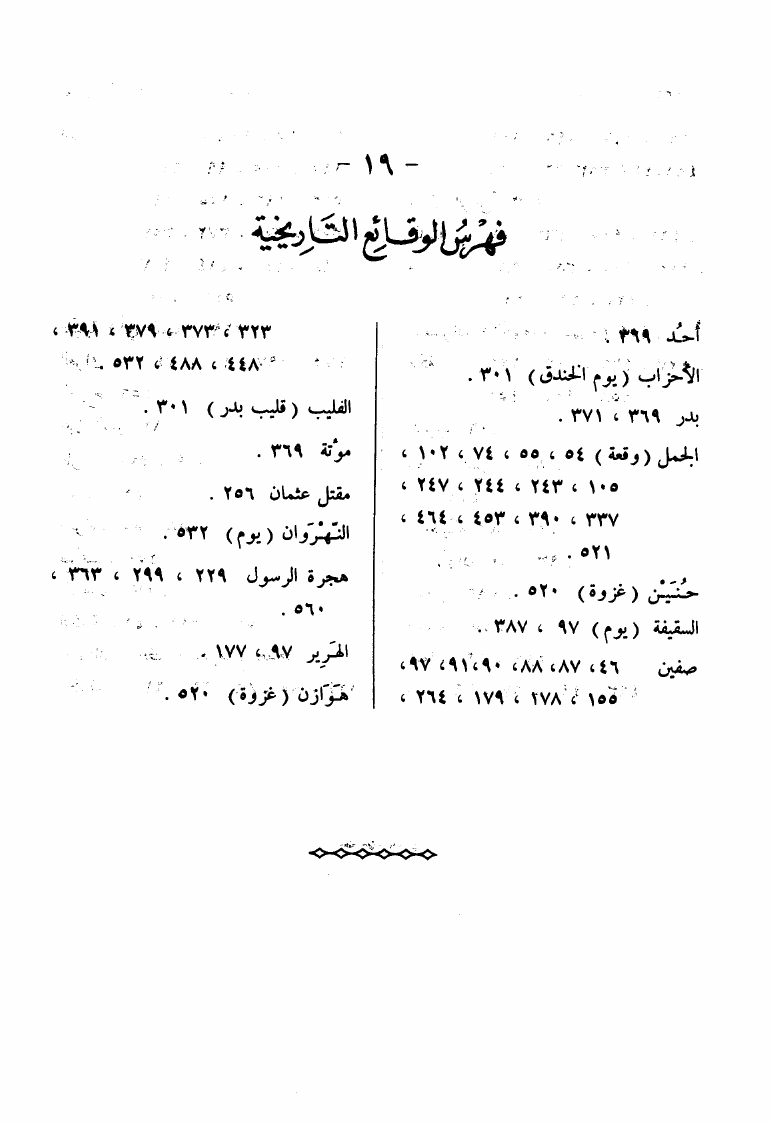 - ١٩ -
فهْرسُ الوقائع التَاريخية
أحُد ٣٦٩ .
الأحزاب (يوم الخندق) ٣٠١ .
بدر ٣٦٩ ، ٣٧١ .
الجمل (وقعة) ٥٤ ، ٥٥ ، ٧٤ ، ١٠٢ ،
١٠٥ ، ٢٤٣ ، ٢٤٤ ، ٢٤٧ ،
٣٣٧ ، ٣٩٠ ، ٤٥٣ ، ٤٦٤ ،
٥٢١ .
حُنَيْن (غزوة) ٥٢٠ .
السقيفة (يوم) ٩٧ ، ٣٨٧ .
صفين ٤٦ ، ٨٧، ٨٨، ٩٠، ٩١، ٩٧،
١٥٥ ، ٢٧٨ ، ١٧٩ ، ٢٦٤ ،
٣٢٣ ، ٣٧٣ ، ٣٧٩ ، ٣٩١ ،
٤٤٨ ، ٤٨٨ ، ٥٣٢ .
القليب (قليب بدر) ٣٠١ .
موْتة ٣٦٩ .
مقتل عثمان ٢٥٦ .
النَّهْرَوان (يوم) ٥٣٢ .
هجرة الرسول ٢٢٩ ، ٢٩٩ ، ٣٦٣ ،
٥٦٠ .
الهَرِير ٩٧ ، ١٧٧ .
هَوَازن (غزوة) ٥٢٠ .